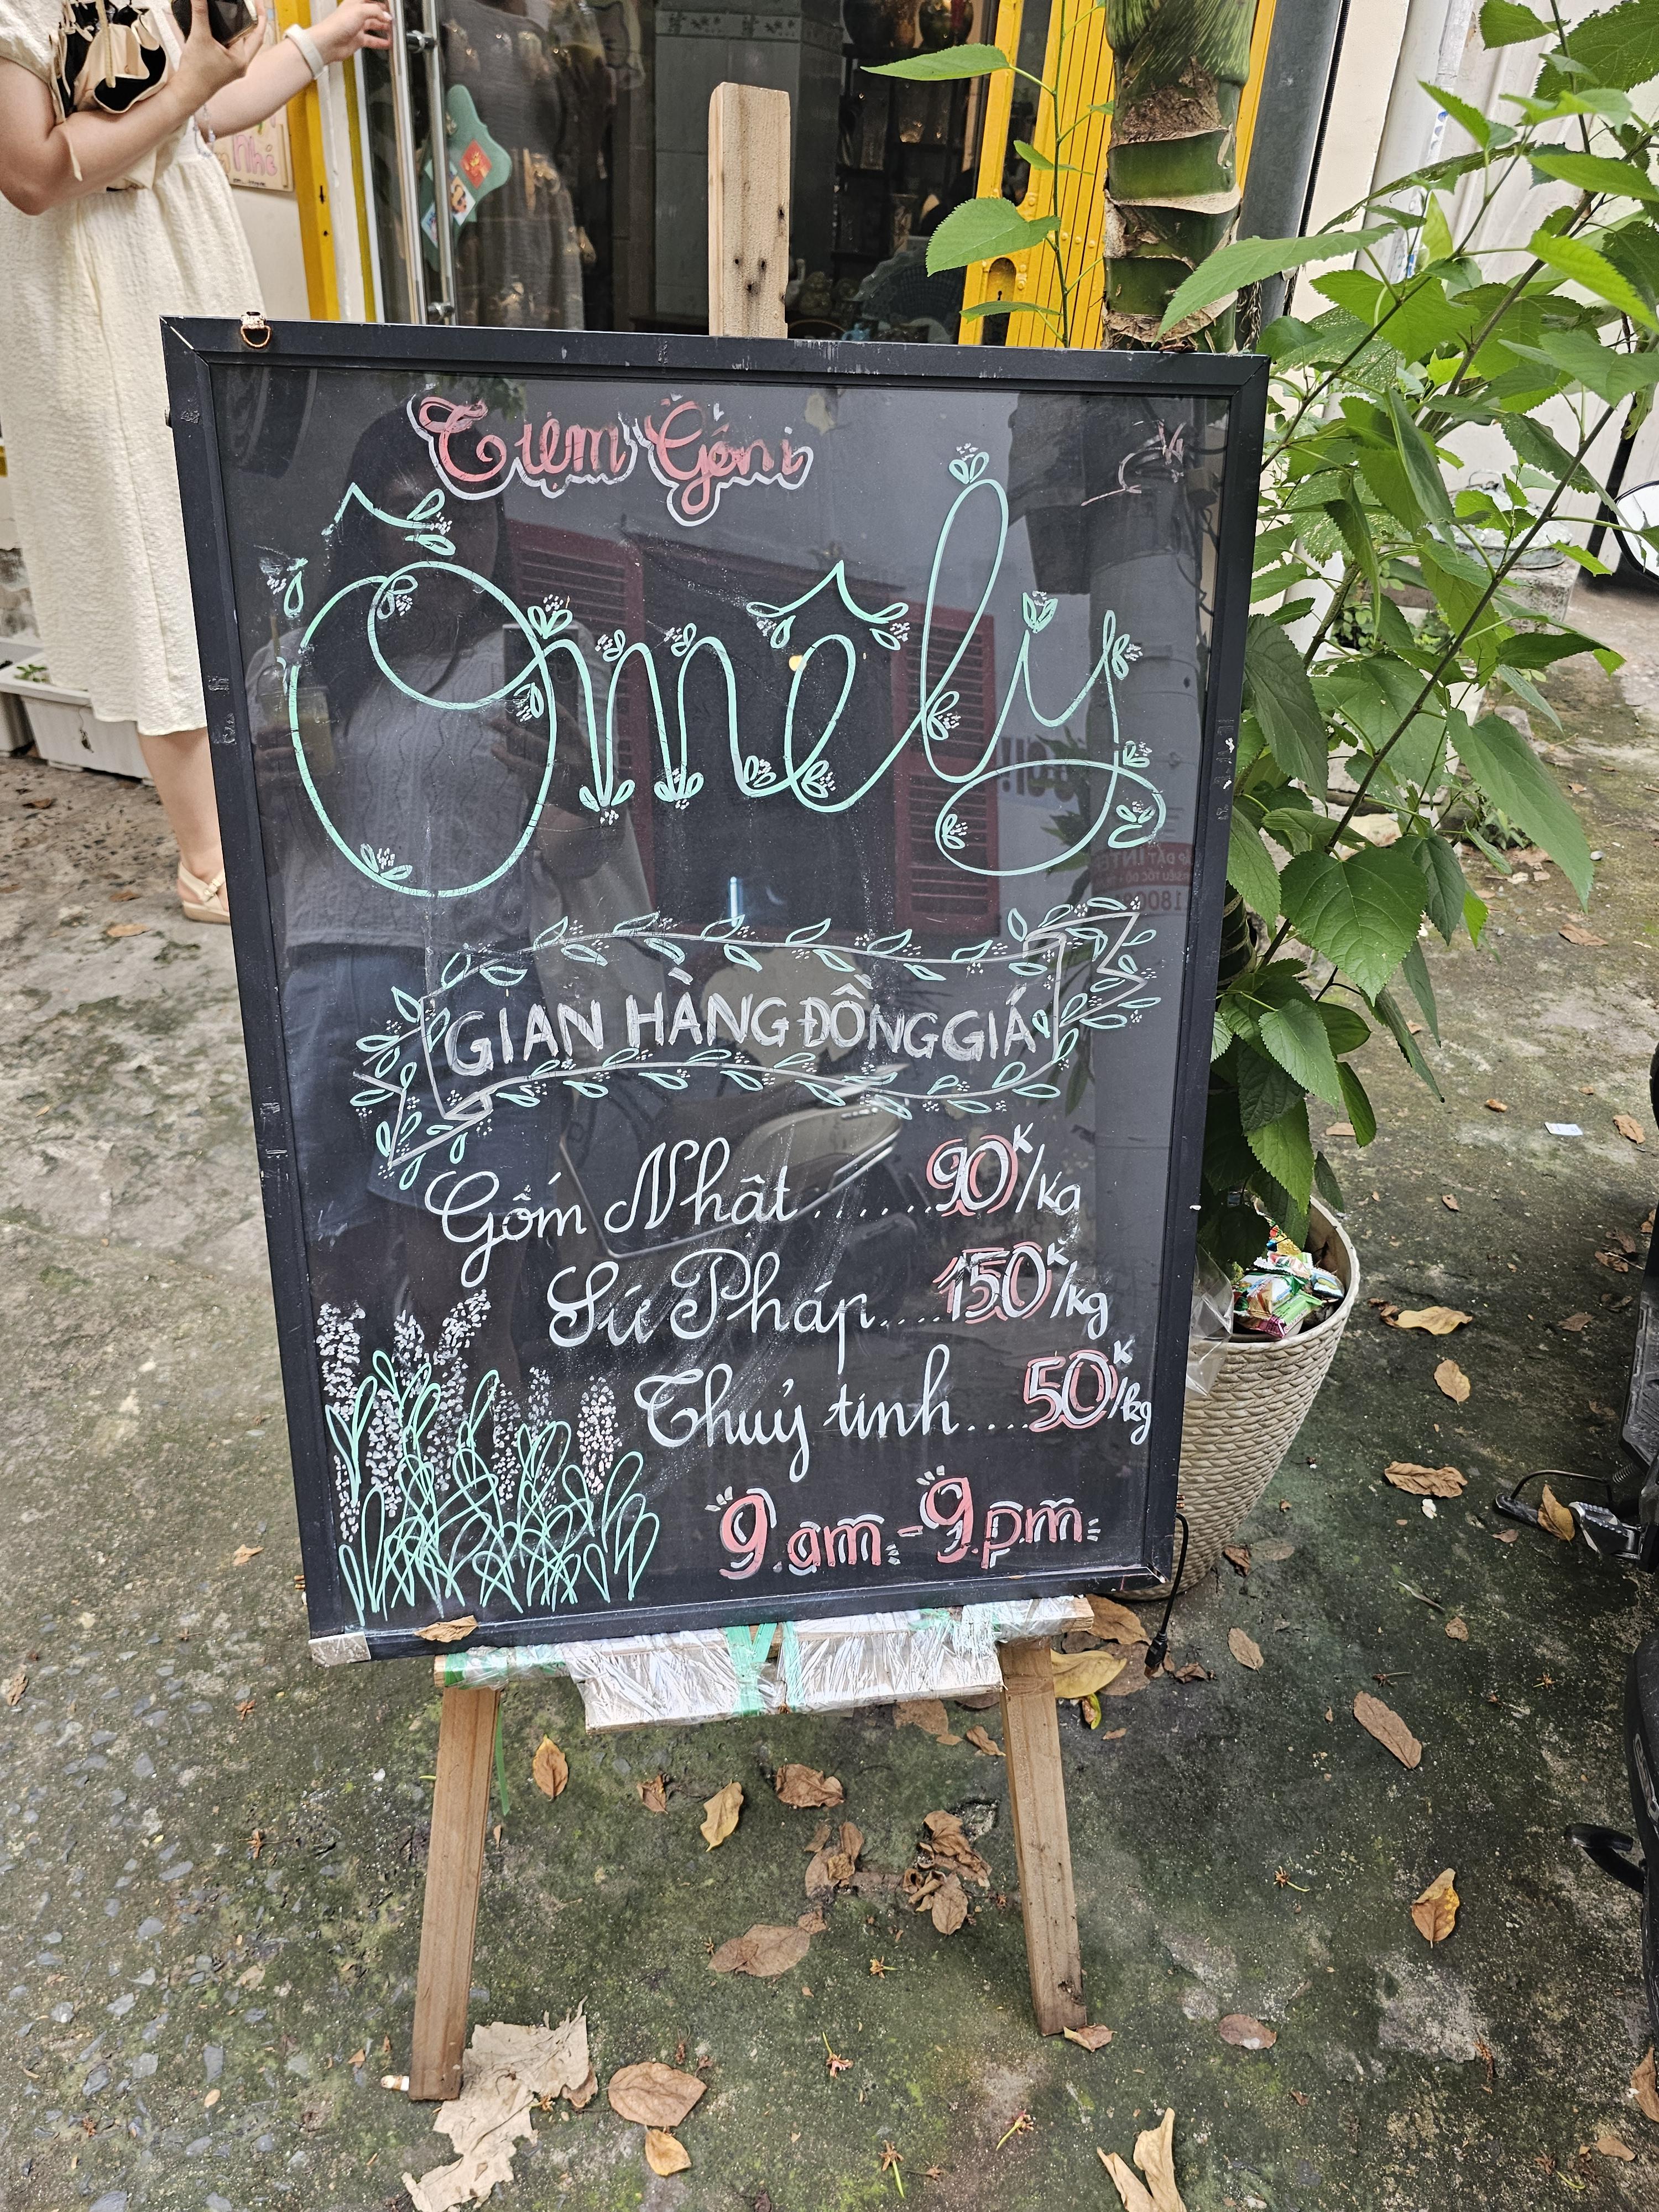 Nhé
Tiệm Gốm
Ômêly
GIAN HÀNG ĐỒNG GIÁ
Gốm Nhật.......90K/kg
Sứ Pháp....150K/kg
Thuỷ tinh....50K/kg
9 am - 9 pm